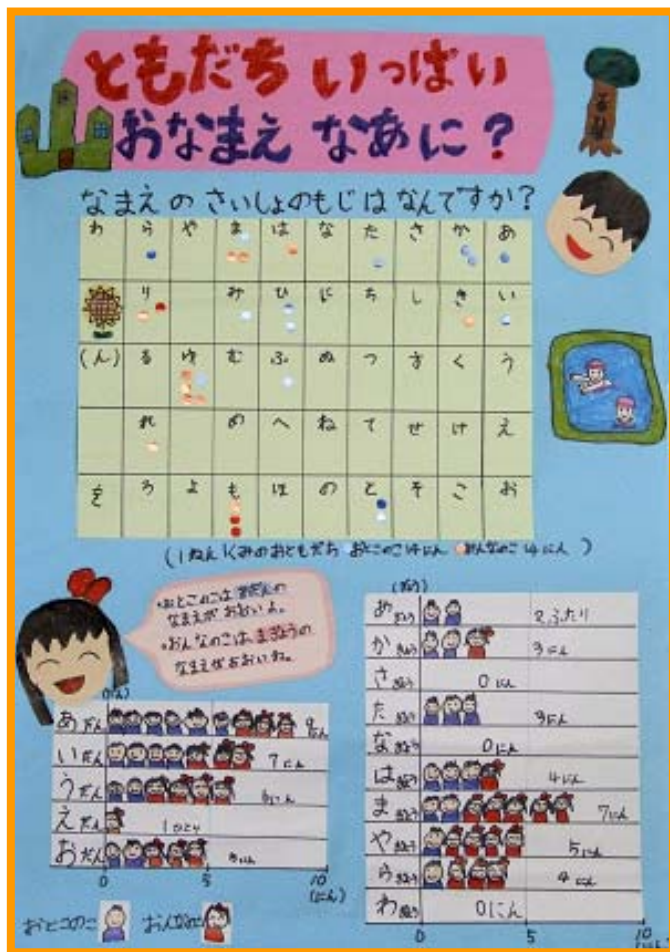 ともだち いっぱい
おなまえ なあに？
なまえ の さいしょのもじは なんですか？
わ ら や ま は な た さ か あ
り み ひ に ち し き い
(ん) る ゆ む ふ ぬ つ す く う
れ め へ ね て せ け え
を ろ よ も ほ の と そ こ お
(1ねん1くみのおともだち おとこのこ14にん おんなのこ14にん)
・おとこのこは あだんの
なまえが おおいよ。
・おんなのこは、まぎょうの
なまえがおおいね。
(にん)
あだん 9にん
いだん 7にん
うだん 6にん
えだん 1ひとり
おだん 5にん
0 5 10
(にん)
おとこのこ おんなのこ
(ぎょう)
あぎょう 2ふたり
かぎょう 3にん
さぎょう 0にん
たぎょう 3にん
なぎょう 0にん
はぎょう 4にん
まぎょう 7にん
やぎょう 5にん
らぎょう 4にん
わぎょう 0にん
0 5 10
(にん)